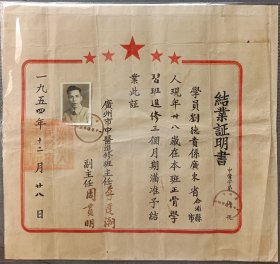 結業証明書
學員劉德貴係廣東省合浦縣市
人現年廿八歲在本班正骨學
習班進修三個月期滿准予結
業此証
廣州市中醫進修班主任
副主任周貫明
一九五四年十二月廿八日